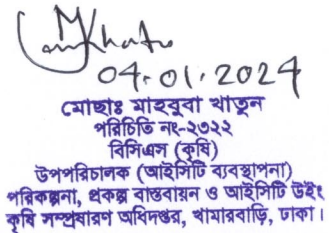 04.01.2024
মোছাঃ মাহবুবা খাতুন
পরিচিতি নং-২৩২২
বিসিএস (কৃষি)
উপপরিচালক (আইসিটি ব্যবস্থাপনা)
পরিকল্পনা, প্রকল্প বাস্তবায়ন ও আইসিটি উইং
কৃষি সম্প্রষারণ অধিদপ্তর, খামারবাড়ি, ঢাকা।